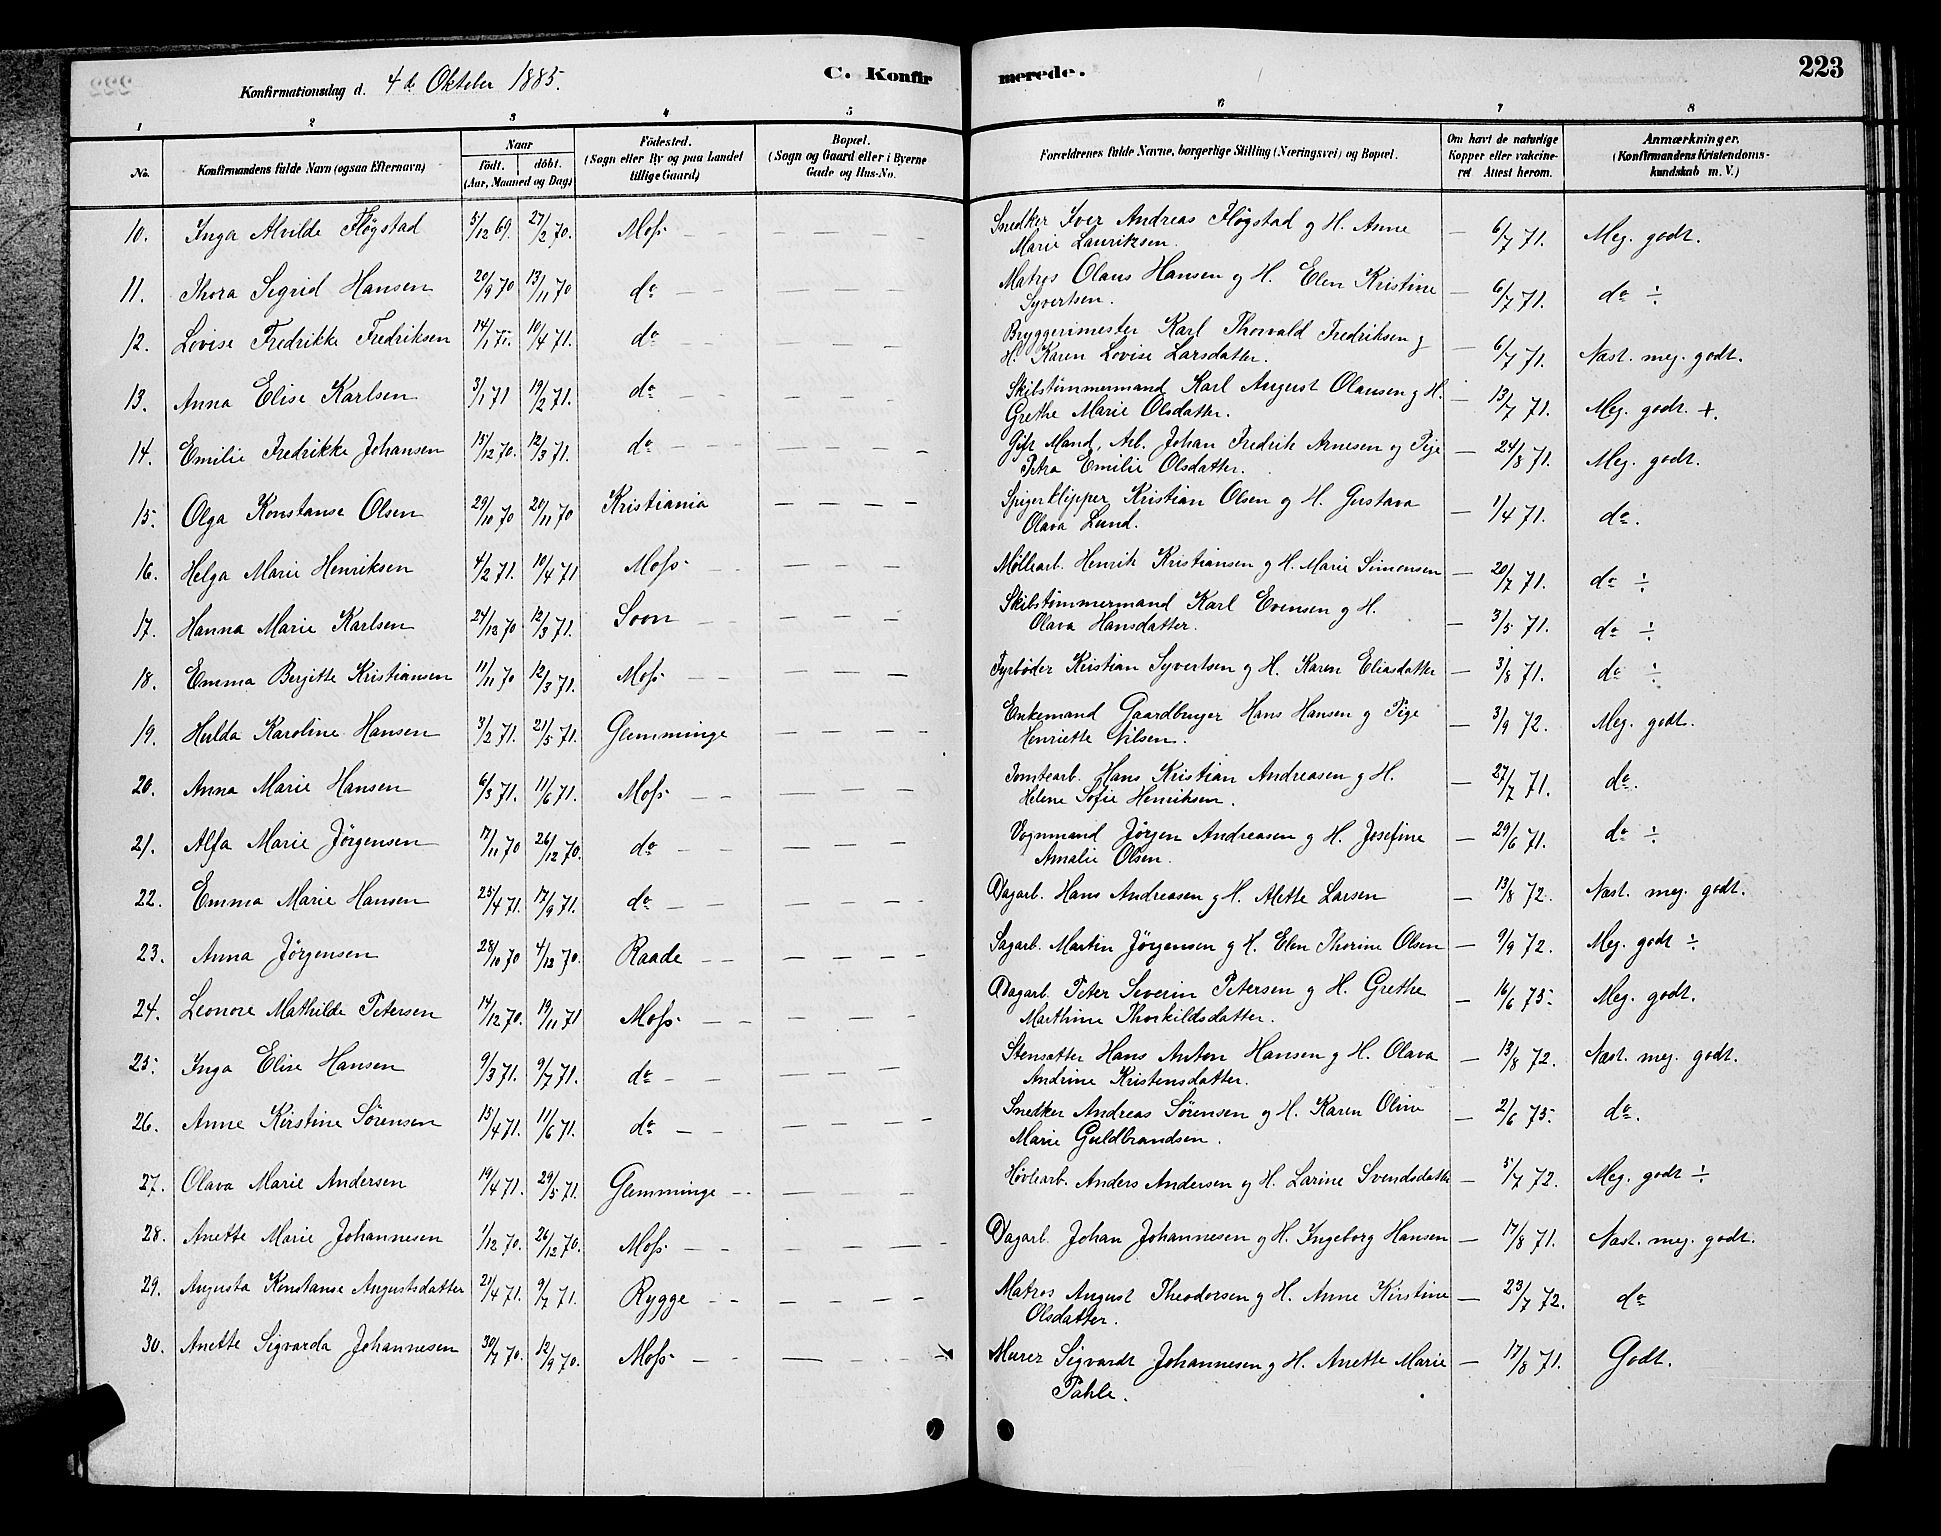 Konfirmationsdag d. 4de Oktober 1885. C. Konfirmerede. 223
1 2 3 4 5 6 7 8
No. Konfirmandens fulde Navn (ogsaa Efternavn) Naar Födt. döbt. (Aar, Maaned og Dag) Födested. (Sogn eller By og paa Landet tillige Gaard) Bopæl. (Sogn og Gaard eller i Byerne Gade og Hus-No. Forældrenes fulde Navne, borgerlige Stilling (Næringsvei) og Bopæl. Om havt de naturlige Kopper eller vakcineret Attest herom. Anmærkninger. (Konfirmandens Kristendomskundskab m. V.)
10. Inga Alvilde Fløgstad 5/12 69. 27/2 70. Moss — — — — — Snedker Iver Andreas Fløgstad g H. Anne — 6/7 71. Meg. godt.
Marie Lauriksen.
11. Thora Sigrid Hansen 20/9 70 13/11 70 do — — — — — Matros Olaus Hansen g H. Elen Kristine — 6/7 71. do ÷
Syvertsen.
12. Lovise Fredrikke Fredriksen 14/1 71. 10/4 71. do — — — — — Bryggerimester Karl Thorvald Fredriksen g
H. Karen Lovise Larsdatter. — 6/7 71. Næst. meg. godt.
13. Anna Elise Karlsen 3/1 71 19/2 71. do — — — — — Skibstømmermand Karl August Olausen g H. — 13/7 71. Meg. godt. +.
Grethe Marie Olsdatter.
14. Emilie Fredrikke Johansen 15/12 70. 12/3 71. do — — — — — Gift Mand, Arb. Johan Fredrik Arnesen og Pige — 24/8 71. Meg. godt.
Petra Emilie Olsdatter.
15. Olga Konstanse Olsen 29/10 70 20/11 70 Kristiania — — — — Spigerklipper Kristian Olsen g H. Gustava — 1/4 71. do.
Olava Lund.
16. Helga Marie Henriksen 4/2 71. 10/4 71 Moss — — — — — Møllearb. Henrik Kristiansen g H. Marie Simensen — 20/7 71. do ÷
17. Hanna Marie Karlsen 24/12 70 12/3 71. Soon — — — — — Skibstømmermand Karl Evensen g H. — 3/5 71. do ÷
Olava Hansdatter.
18. Emma Birgitte Kristiansen 11/11 70 12/3 71. Moss — — — — — Fyrbøder Kristian Syvertsen g H. Karen Eliasdatter — 3/8 71. do ÷
19. Hulda Karoline Hansen 3/2 71. 21/5 71. Glemminge — — — — Enkemand Gaardbruger Hans Hansen g Pige — 3/9 72. Meg. godt.
Henriette Nilsen.
20. Anna Marie Hansen 6/3 71. 11/6 71. Moss — — — — — Tomtearb. Hans Kristian Andreasen g H. — 27/7 71. do.
Helene Sofie Henriksen.
21. Alfa Marie Jörgensen 17/11 70 26/12 70. do — — — — — Vognmand Jörgen Andreasen g H. Josefine — 29/6 71. do ÷
Amalie Olsen.
22. Emma Marie Hansen 25/4 71. 17/9 71. do — — — — — Dagarb. Hans Andreasen g H. Alette Larsen — 13/8 72. Næst. meg. godt.
23. Anna Jörgensen 28/10 70 4/12 70. Raade — — — — — Sagarb. Martin Jörgensen g H. Elen Thorine Olsen — 9/9 72. Meg. godt ÷
24. Leonore Mathilde Petersen 14/12 70. 19/11 71 Moss — — — — — Dagarb. Peter Severin Petersen g H. Grethe — 16/6 75. Meg. godt.
Marthine Thorkildsdatter.
25. Inga Elise Hansen 9/3 71. 9/7 71. do — — — — — Stensætter Hans Anton Hansen g H. Olava — 13/8 72. Næst. meg. godt.
Andrine Kristensdatter.
26. Anne Kirstine Sörensen 15/4 71. 11/6 71. do — — — — — Snedker Andreas Sörensen g H. Karen Oline — 2/6 75. do.
Marie Guldbrandsen.
27. Olava Marie Andersen 19/4 71. 29/5 71. Glemminge — — — — Høvlearb. Anders Andersen g H. Larine Svendsdatter — 5/7 72. Meg. godt ÷
28. Anette Marie Johannesen 1/12 70. 26/12 70. Moss — — — — — Dagarb. Johan Johannesen g H. Ingeborg Hansen — 17/8 71. Næst. meg. godt.
29. Augusta Konstanse Augustsdatter 21/4 71. 9/7 71. Rygge — — — — — Matros August Theodorsen g H. Anne Kirstine — 23/7 72. do
Olsdatter.
30. Anette Sigvarda Johannesen 30/7 70. 12/9 70. Moss — — — — — Murer Sigvardt Johannesen g H. Anette Marie — 17/8 71. Godt.
Pahle.